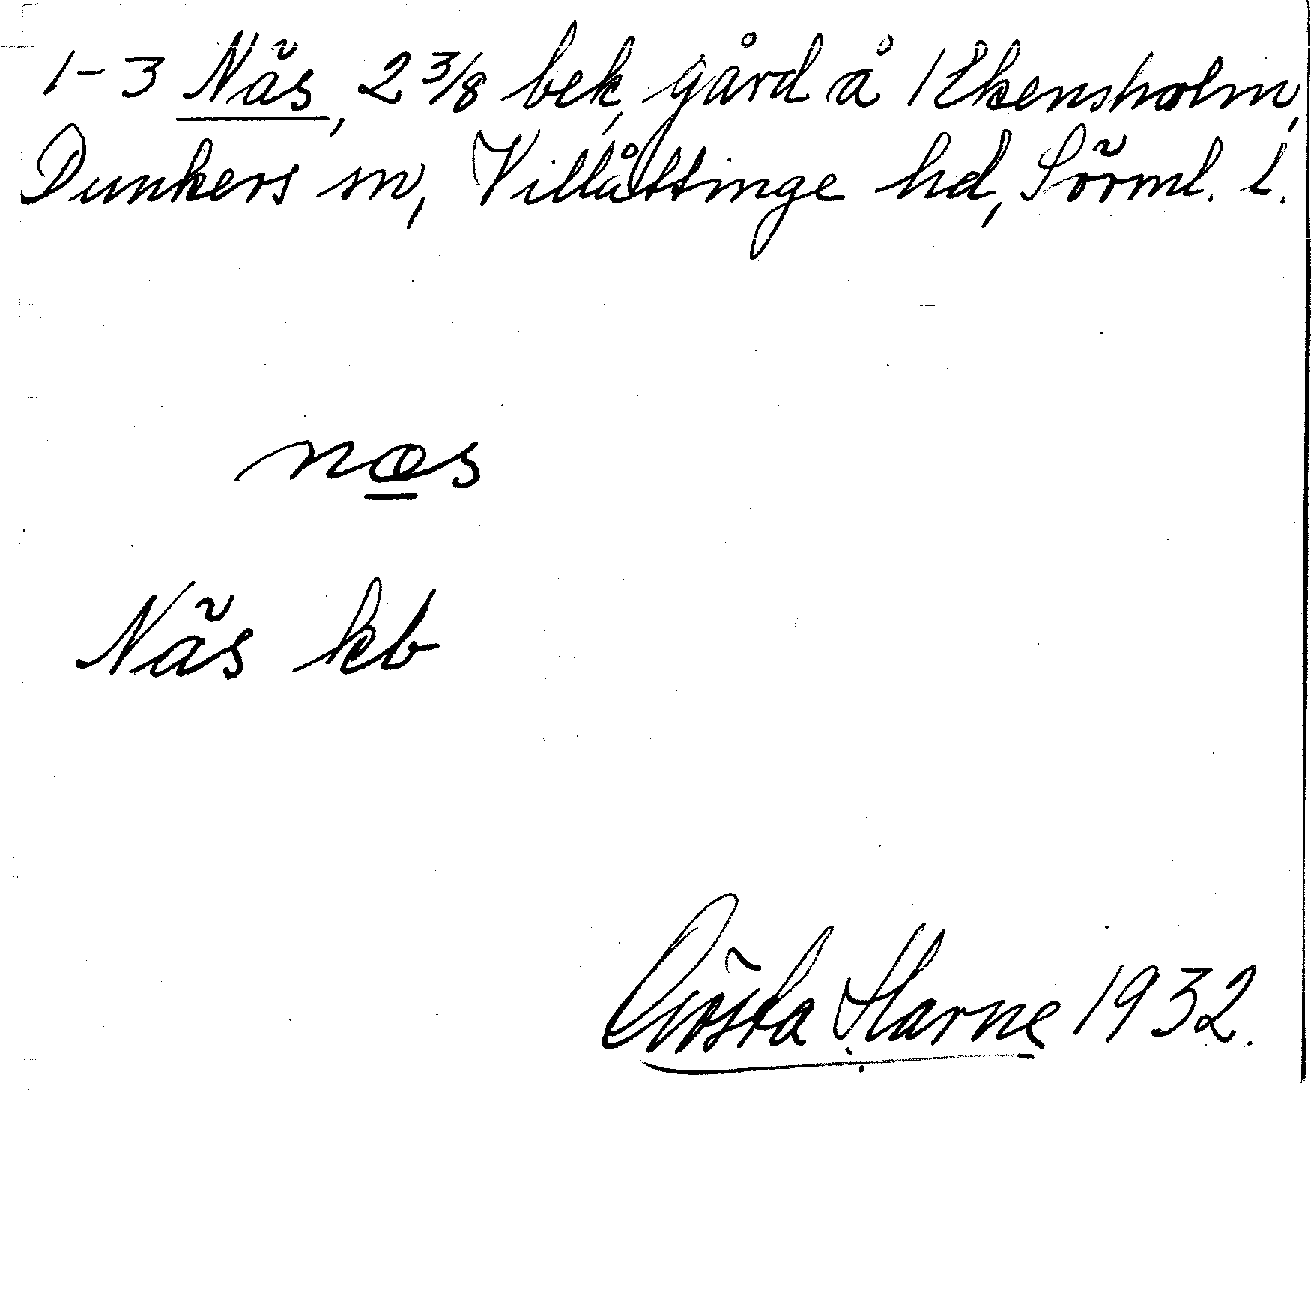 1-3 Näs, 2 3/8 bek, gård å 1 Ekensholm,
Dunkers sn, Villåttinge hd, Sörml. l.
næs
Näs kb
Gösta Harne 1932.